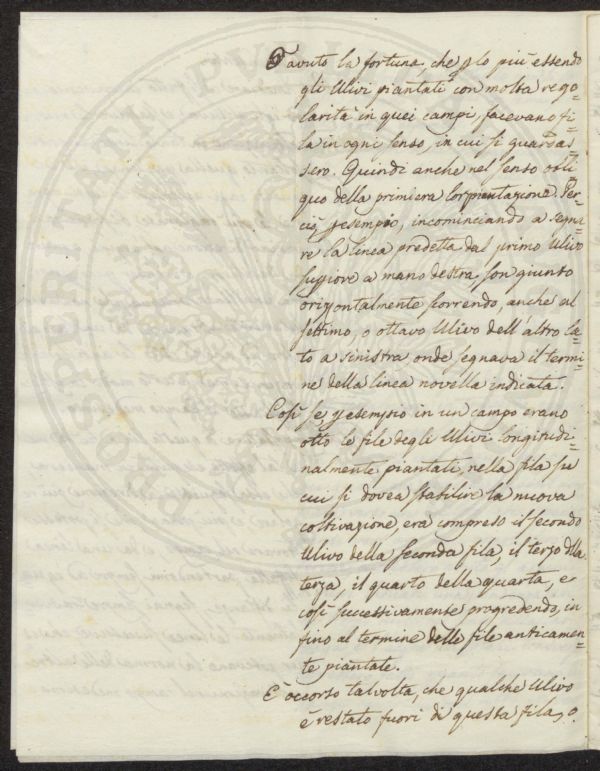 avuto la fortuna, che p lo più essendo
gli Ulivi piantati con molta rego=
larità in quei campi, facevano fi=
la in ogni senso, in cui si guardas=
sero. Quindi anche nel senso obli=
quo della primiera lor piantazione. Per=
ciò, p esempio, incominciando a segna=
re la linea predetta dal primo Ulivo
supiore a mano destra, son giunto
orizzontalmente correndo, anche al
settimo, o ottavo Ulivo dell'altro la=
to a sinistra onde segnava il termi=
ne della linea novella indicata.
Così se, p esempio in un campo erano
otto le file degli Ulivi longitudi=
nalmente piantati, nella fila su
cui si dovea stabilire la nuova
coltivazione, era compreso il secondo
Ulivo della seconda fila, il terzo della
terza, il quarto della quarta, e
così successivamente progredendo, in
fino al termine delle file anticamen=
te piantate.
È occorso talvolta, che qualche Ulivo
è restato fuori di questa fila, o
PVBLICA
VERITATI